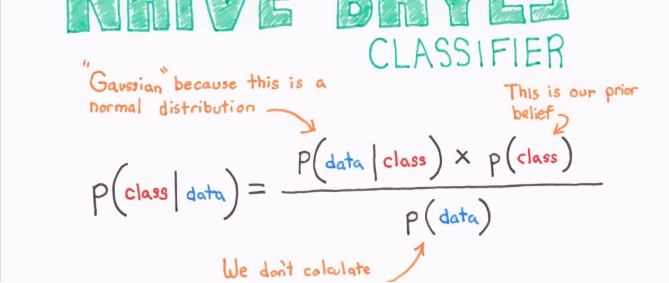 NAIVE BAYES
CLASSIFIER
"Gaussian" because this is a
normal distribution
This is our prior
belief
P(data | class) × P(class)
P(class | data) =
P(data)
We don't calculate